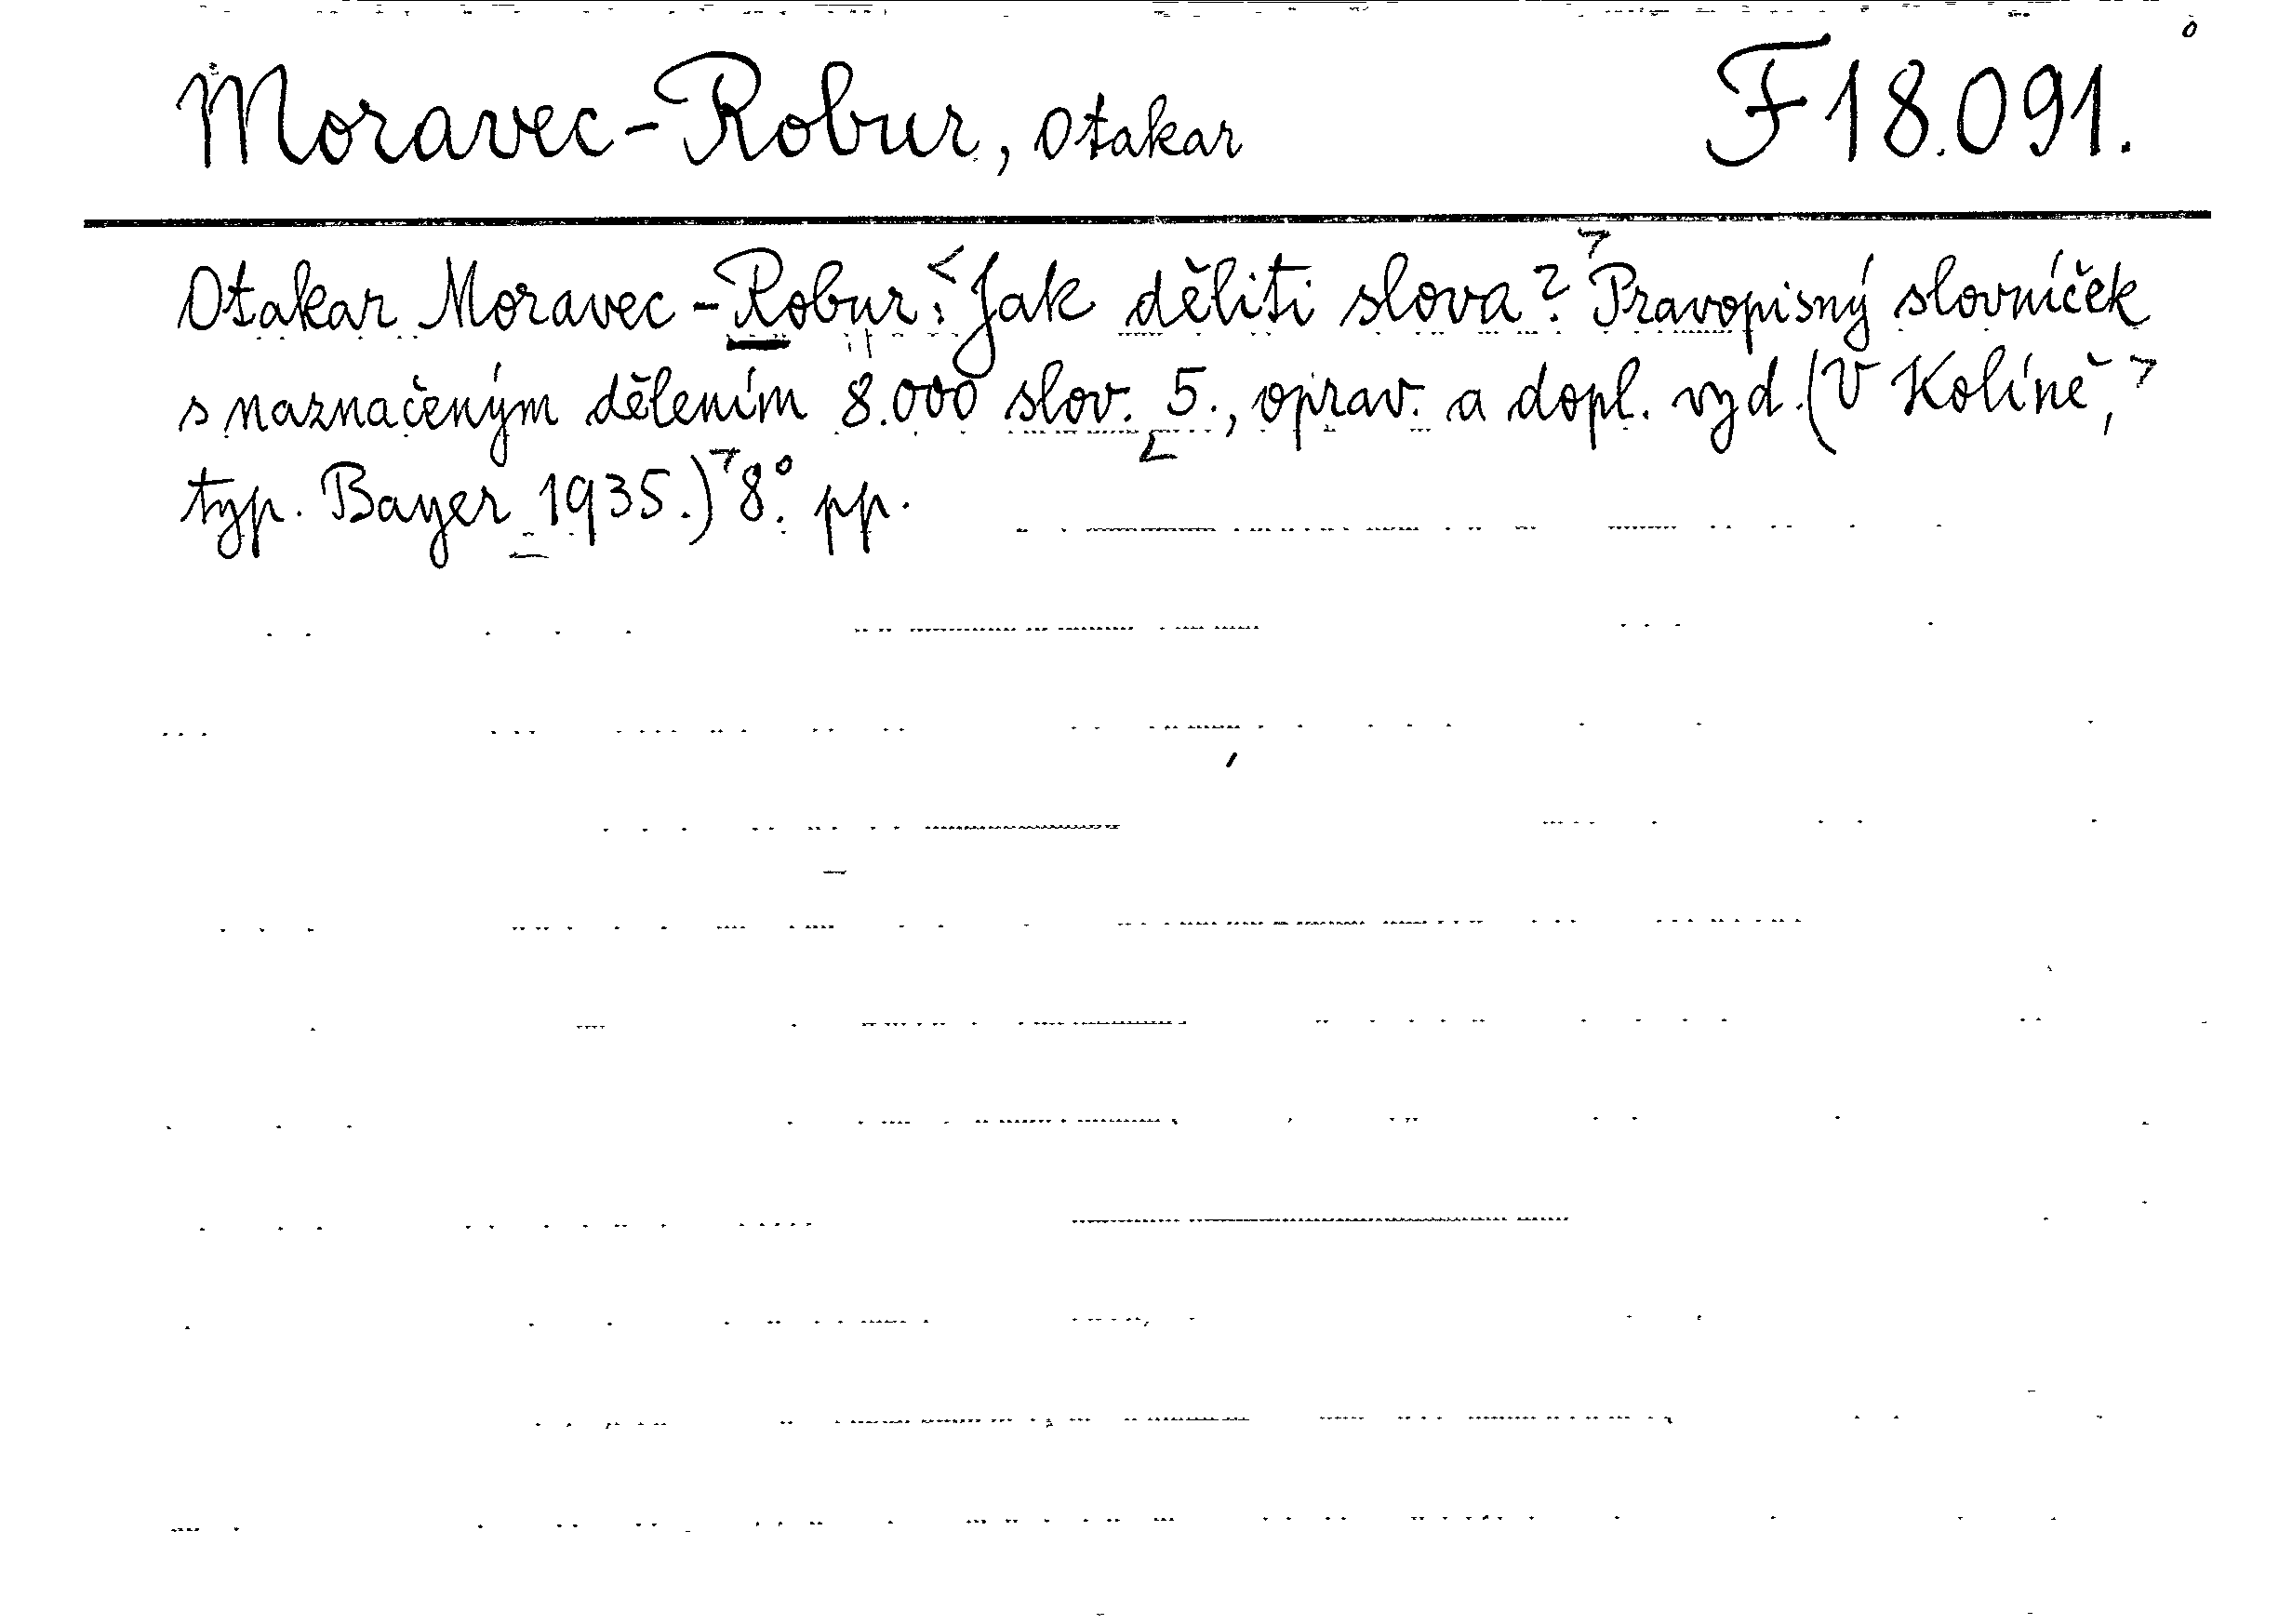 Moravec-Robur, Otakar F 18.091.
Otakar Moravec-Robur: Jak děliti slova? Pravopisný slovníček
s naznačeným dělením 8.000 slov. 5., oprav. a dopl. vyd. (V Kolíně,
typ. Bayer 1935.) 8° pp.